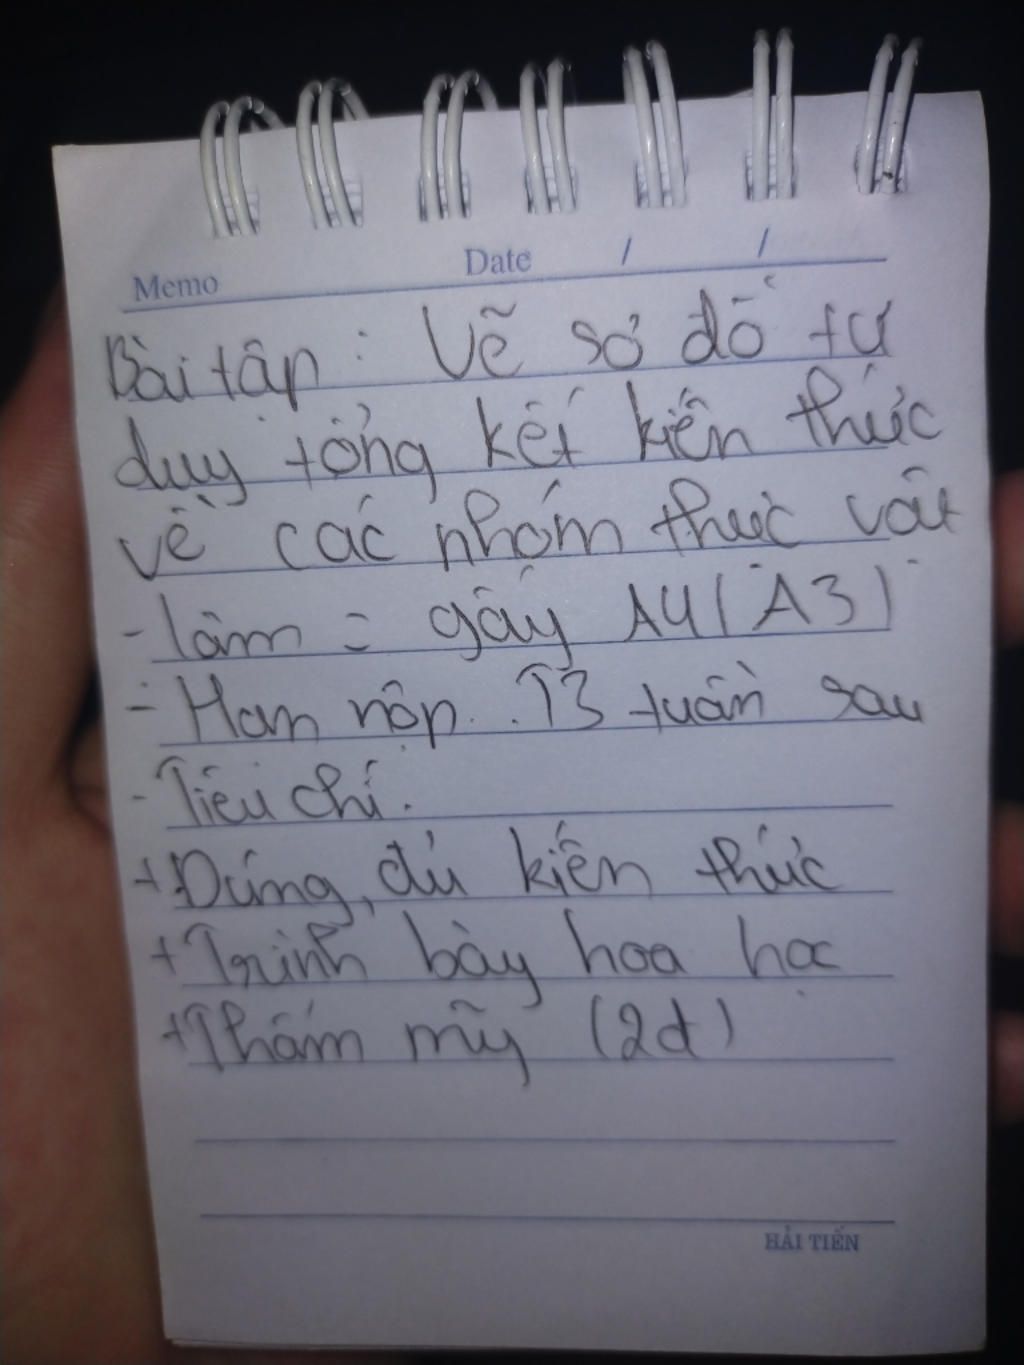 Memo Date / /
Bài tập : Vẽ sơ đồ tư
duy tổng kết kiến thức
về các nhóm thực vật
- làm = giấy A4 (A3)
- Hạn nộp : T3 tuần sau
- Tiêu chí :
+ Đúng, đủ kiến thức
+ Trình bày khoa học
+ Thẩm mỹ (2đ)
HẢI TIẾN